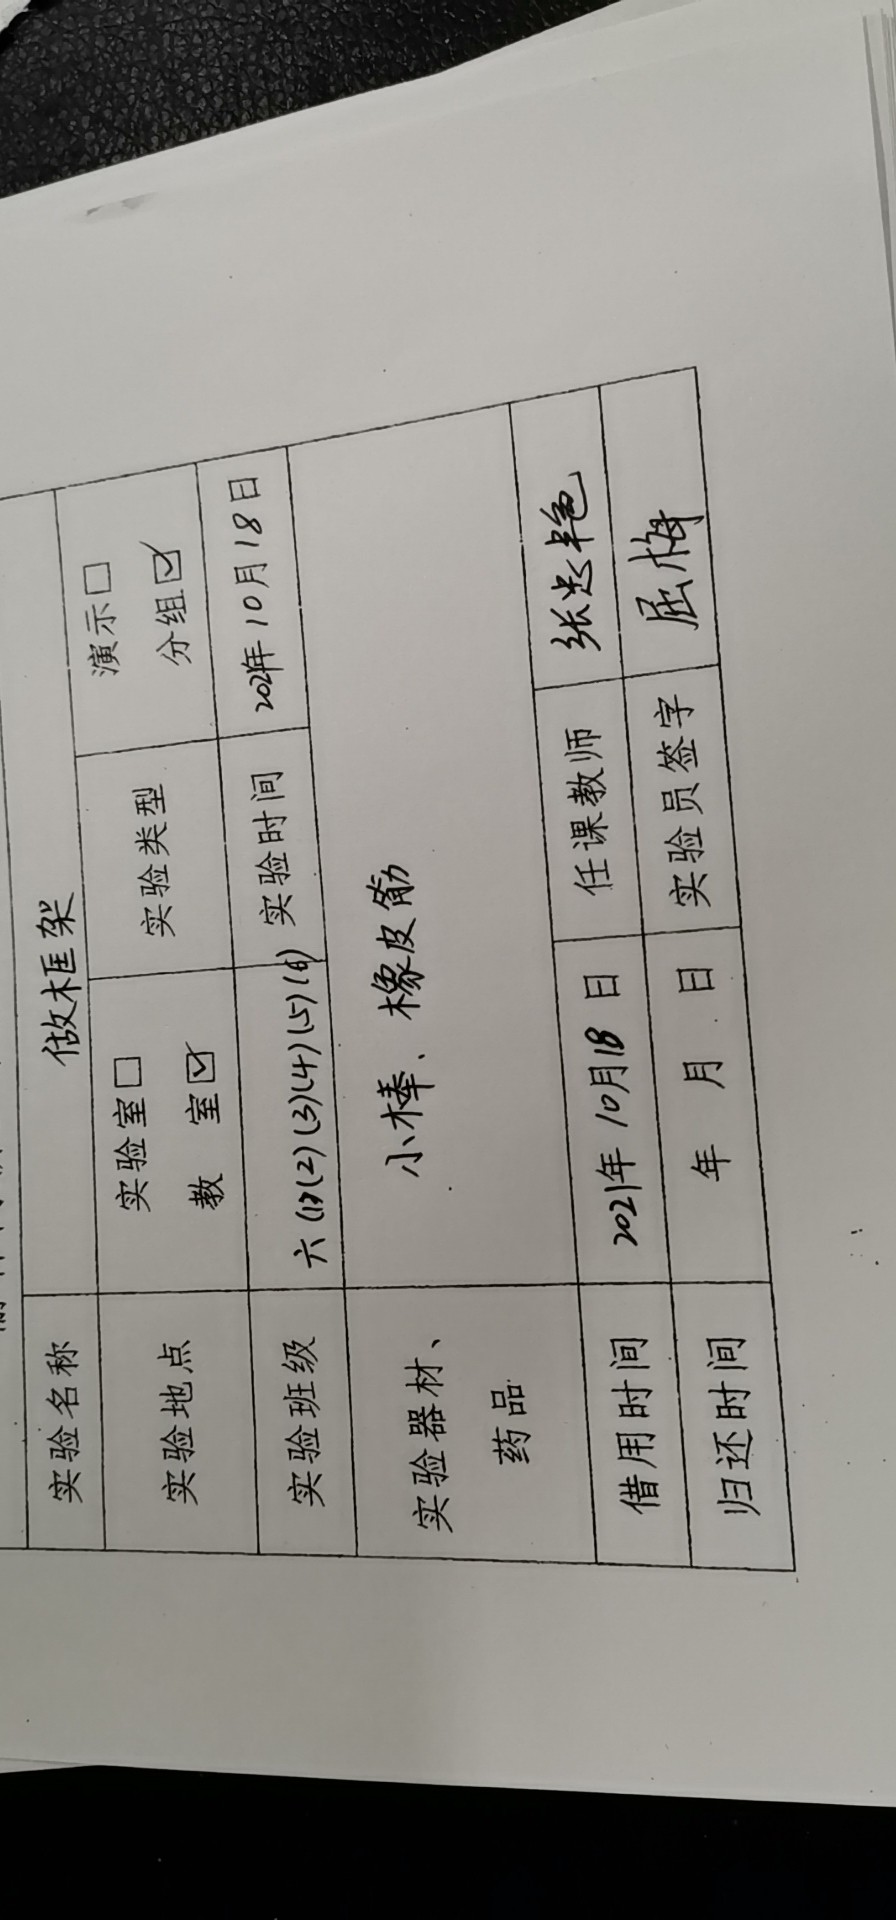 实验名称 做木框架
实验地点 实验室□ 教 室☑ 实验类型 演示□ 分组☑
实验班级 六(1)(2)(3)(4)(5)(6) 实验时间 2021年10月18日
实验器材、药品 小棒、橡皮筋
借用时间 2021年10月18日 任课教师 张忠艳
归还时间 年 月 日 实验员签字 屈梅